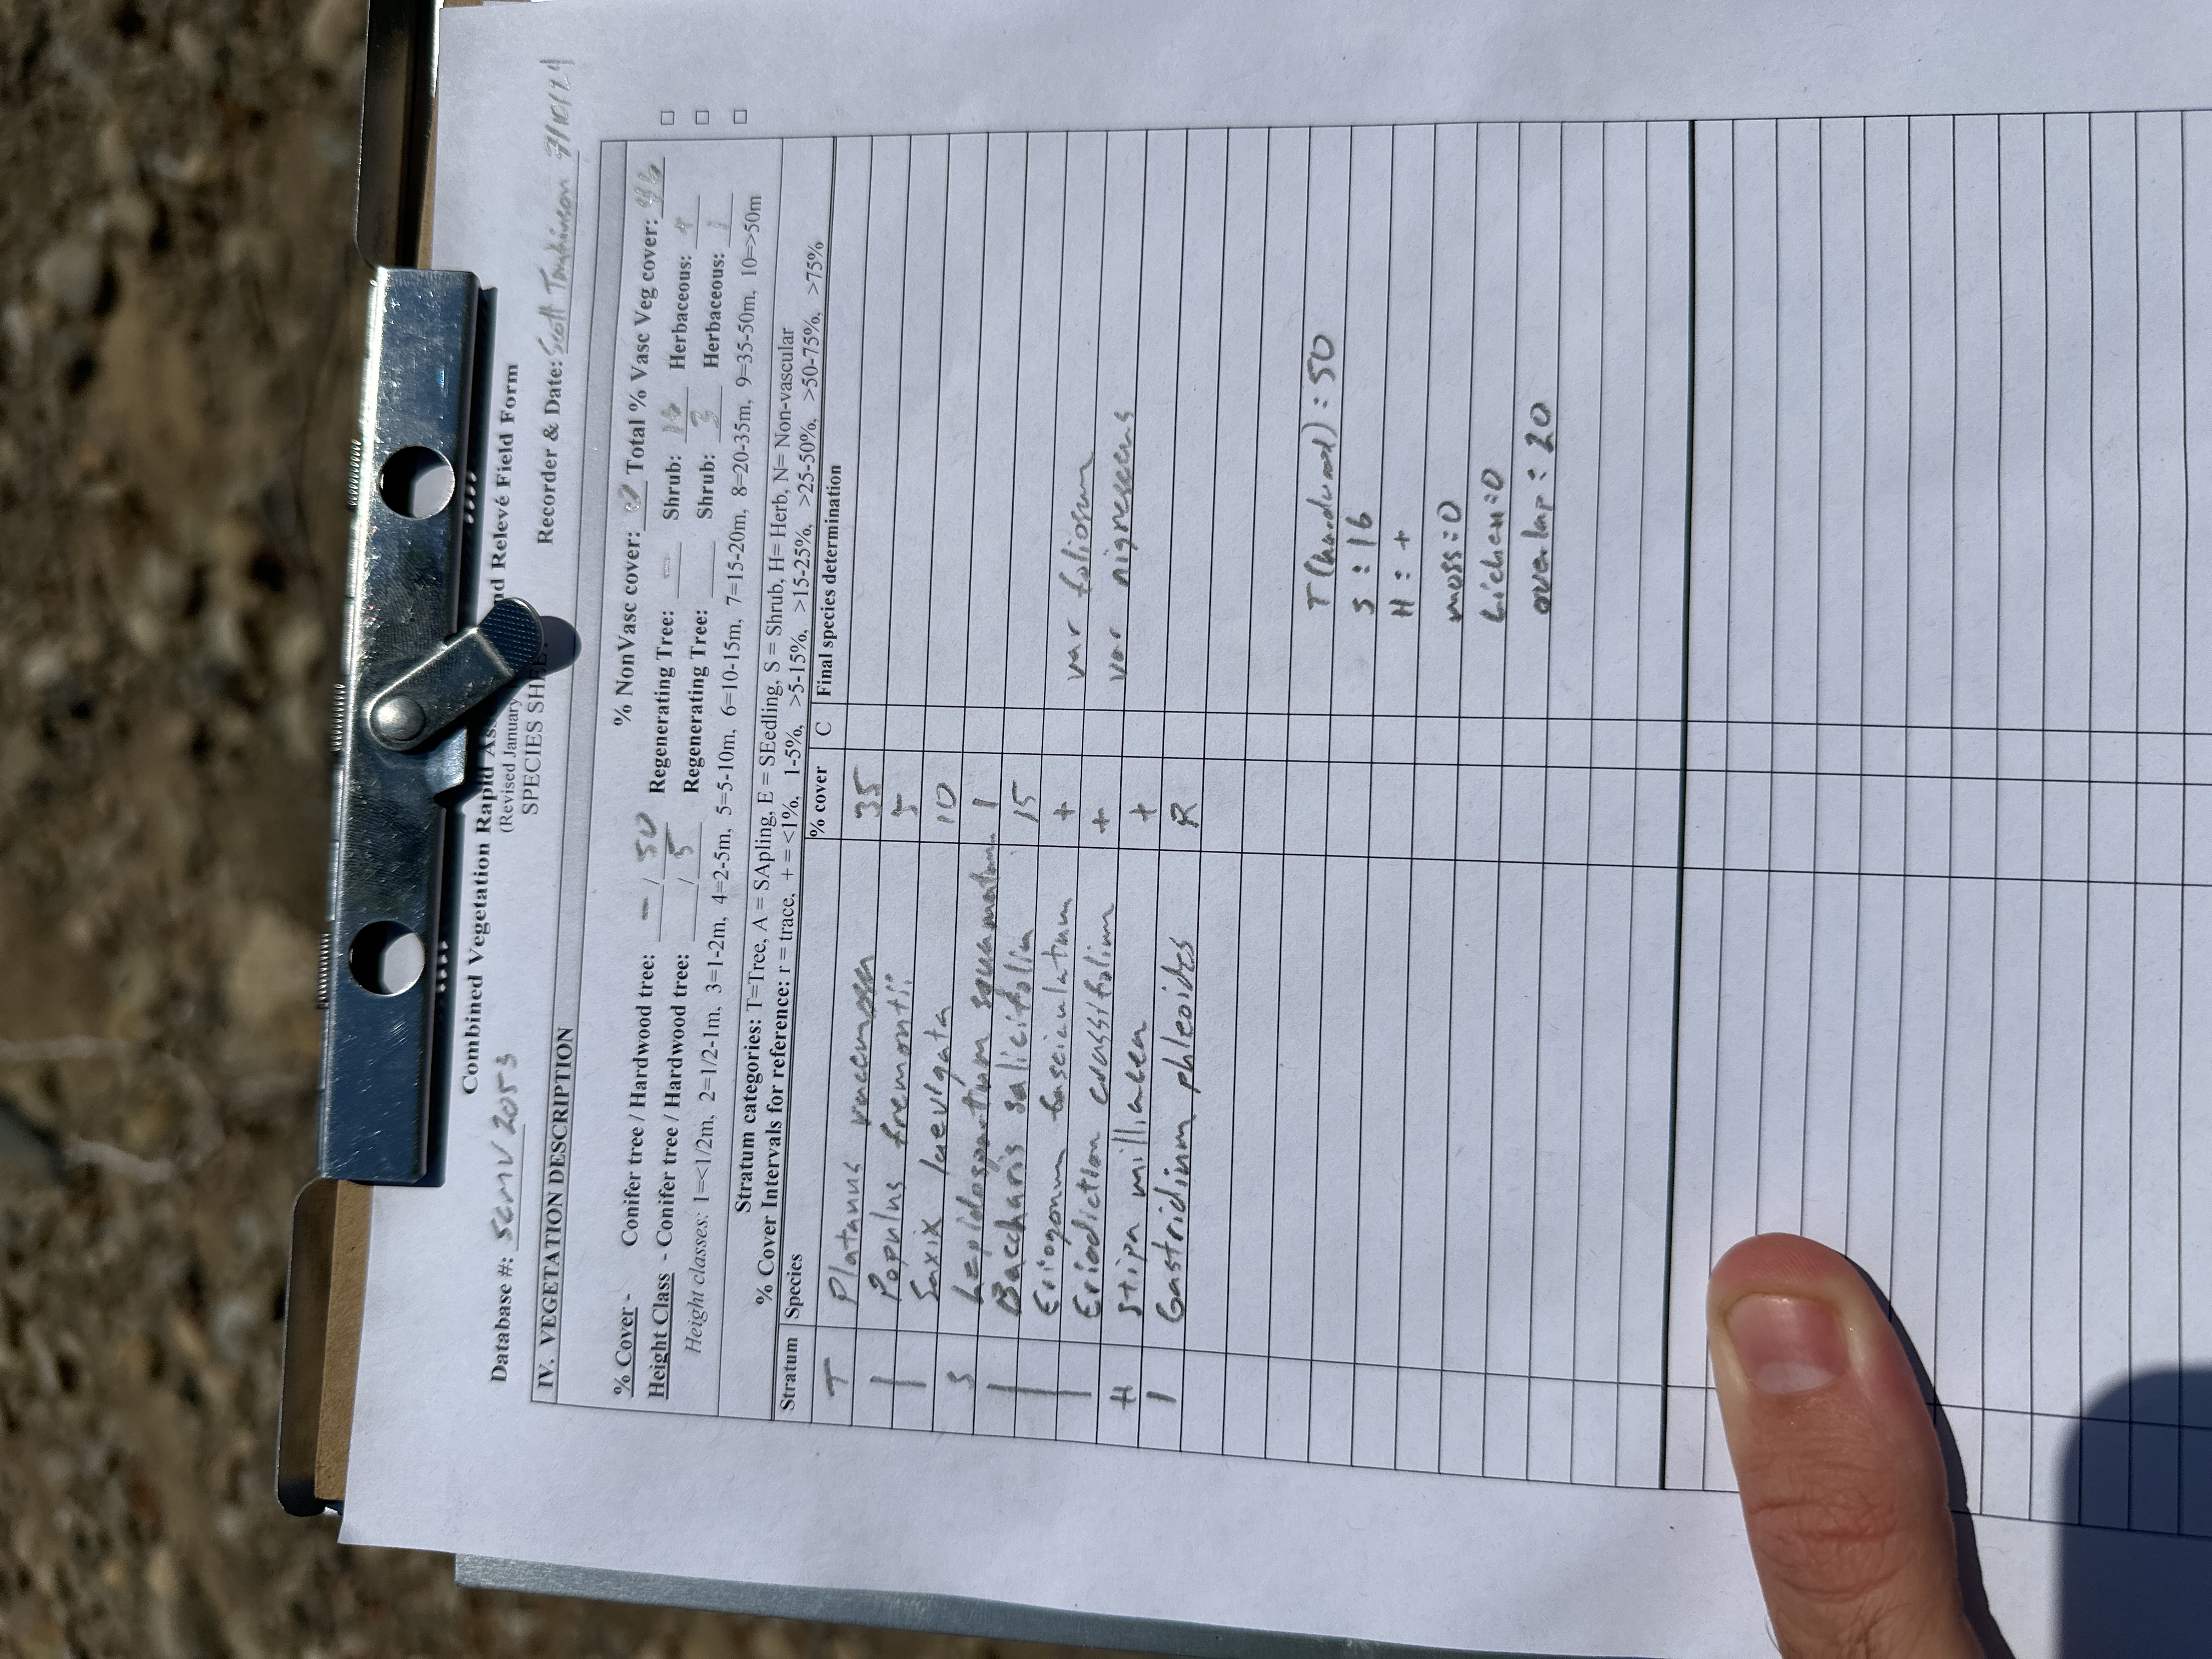 Combined Vegetation Rapid Ass nd Relevé Field Form
(Revised January
SPECIES SHEE
Database #: SCMV2053 Recorder & Date: Scott Tomlinson 7/10/24
IV. VEGETATION DESCRIPTION
% NonVasc cover: Total % Vasc Veg cover: 46
% Cover - Conifer tree / Hardwood tree: — / 50 Regenerating Tree: — Shrub: 16 Herbaceous: +
Height Class - Conifer tree / Hardwood tree: / 5 Regenerating Tree: Shrub: 3 Herbaceous: 1
Height classes: 1=<1/2m, 2=1/2-1m, 3=1-2m, 4=2-5m, 5=5-10m, 6=10-15m, 7=15-20m, 8=20-35m, 9=35-50m, 10=>50m
Stratum categories: T=Tree, A = SApling, E = SEedling, S = Shrub, H= Herb, N= Non-vascular
% Cover Intervals for reference: r = trace, + = <1%, 1-5%, >5-15%, >15-25%, >25-50%, >50-75%, >75%
Stratum Species % cover C Final species determination
T Platanus racemosa 35
| Populus fremontii 5
| Saxix laevigata 10
S Lepidospartum squamatum 1
| Baccharis salicifolia 15
| Eriogonum fasciculatum + var foliosum
| Eriodiction crassifolium + var nigrescens
H Stipa milliacea +
| Gastridium phleoides R
T (hardwood) : 50
S : 16
H : +
moss : 0
Lichen : 0
overlap : 20